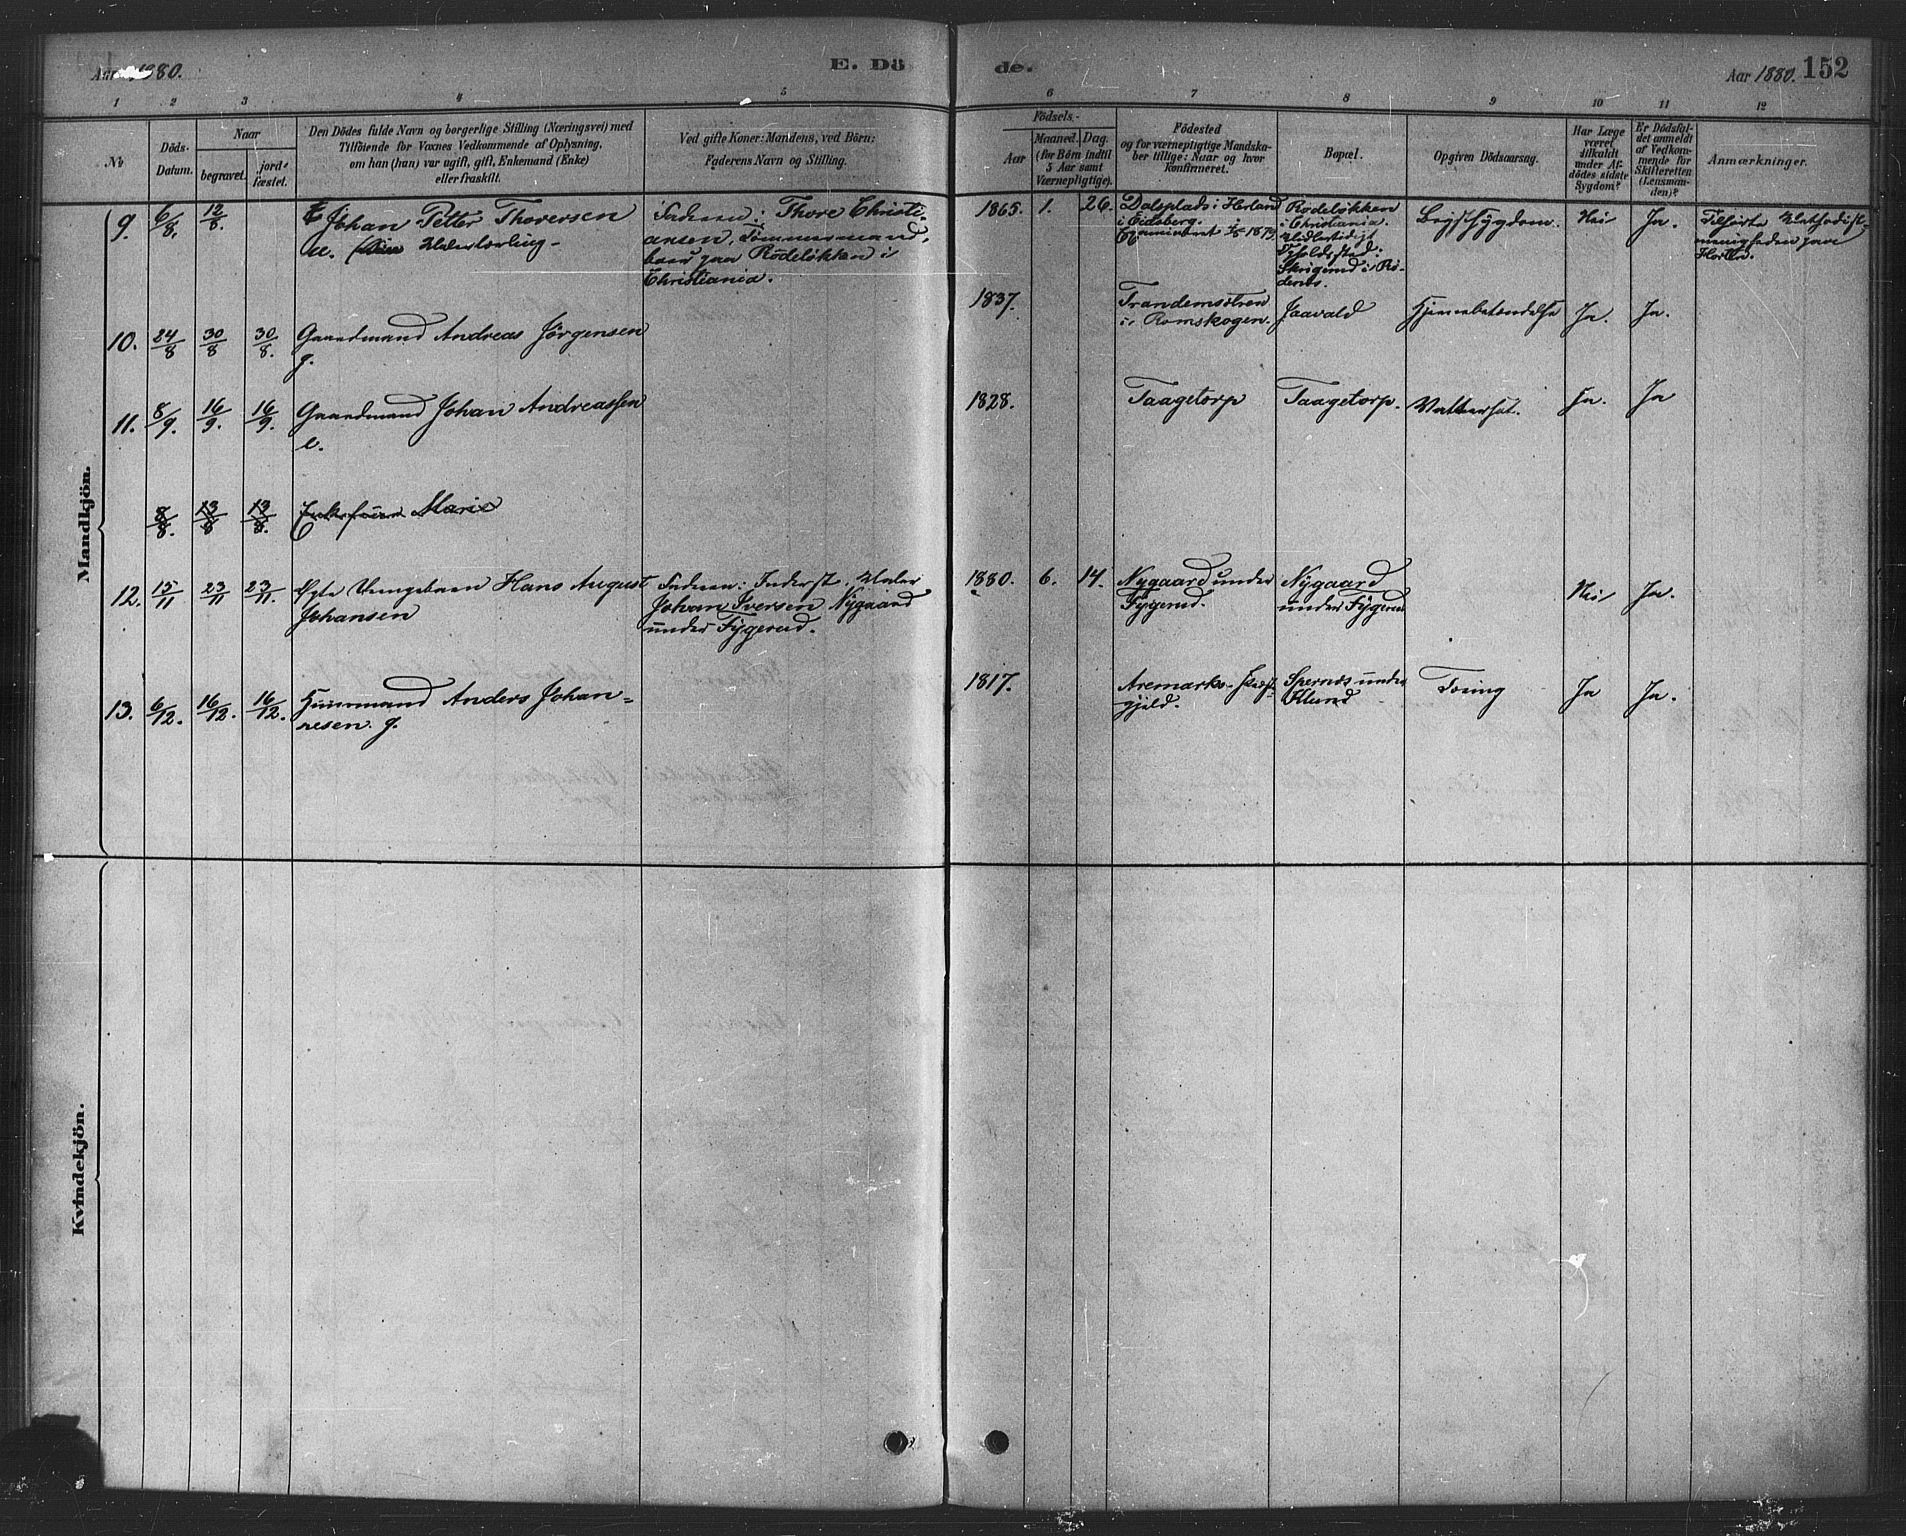 Aar 1880.
E. Dö
de.
Aar 1880.
152
1
2
3
4
5
6
7
8
9
10
11
12
No
Döds-
Datum.
Naar
begravet.
jord-
fæstet.
Den Dödes fulde Navn og borgerlige Stilling (Næringsvei) med
Tilföiende for Voxnes Vedkommende af Oplysning,
om han (hun) var ugift, gift, Enkemand (Enke)
eller fraskilt.
Ved gifte Koner: Mandens, ved Börn:
Faderens Navn og Stilling.
Födsels.-
Aar
Maaned.
Dag.
(for Börn indtil
5 Aar samt
Værnepligtige).
Födested
og for værnepligtige Mandska-
ber tillige: Naar og hvor
konfirmeret.
Bopæl.
Opgiven Dödsaarsag.
Har Læge
været
tilkaldt
under Af-
dödes sidste
Sygdom?
Er Dödsfal-
det anmeldt
af Vedkom-
mende for
Skifteretten
(Lensman-
den)?
Anmærkninger.
Mandkjön.
9. 6/8. 12/8. Johan Petter Thoversen
u.
Faderen: Thore Christi-
ansen, Tømmermand,
boer paa Rodeløkken i
Christiania.
1865. 1. 26. Dalsplads i Herland
i Eidsberg.
1879.
Rodeløkken
i Christiania.
Midlertidigt
Opholdssted:
Skrigerud i Rø-
denes.
Brystsygdom. Nei Ja. Tilhørte Methodist-
menigheden paa
Horten.
10. 24/8 30/8 30/8. Gaardmand Andreas Jörgensen
g.
1837. Trandemsætren
i Romskogen.
Jaavald Hjernebetændelse Ja. Ja.
11. 8/9. 16/9. 16/9. Gaardmand Johan Andreassen
e.
1828. Taagetorp Taagetorp. Vattersot. Ja. Ja
8/8. 13/8 13/8. Marie
12. 15/11 23/11 23/11. Ægte Drengebarn Hans August
Johansen
Faderen: Inderst, Maler
Johan Iversen Nygaard
under Fygerud.
1880. 6. 14. Nygaard under
Fygerud.
Nygaard
under Fygerud
Nei Ja.
13. 6/12. 16/12. 16/12. Huusmand Anders Johan-
nesen g.
1817. Aremarks Præste-
gjeld.
Spernæs under
Klund
Tæring Ja Ja.
Kvindekjön.